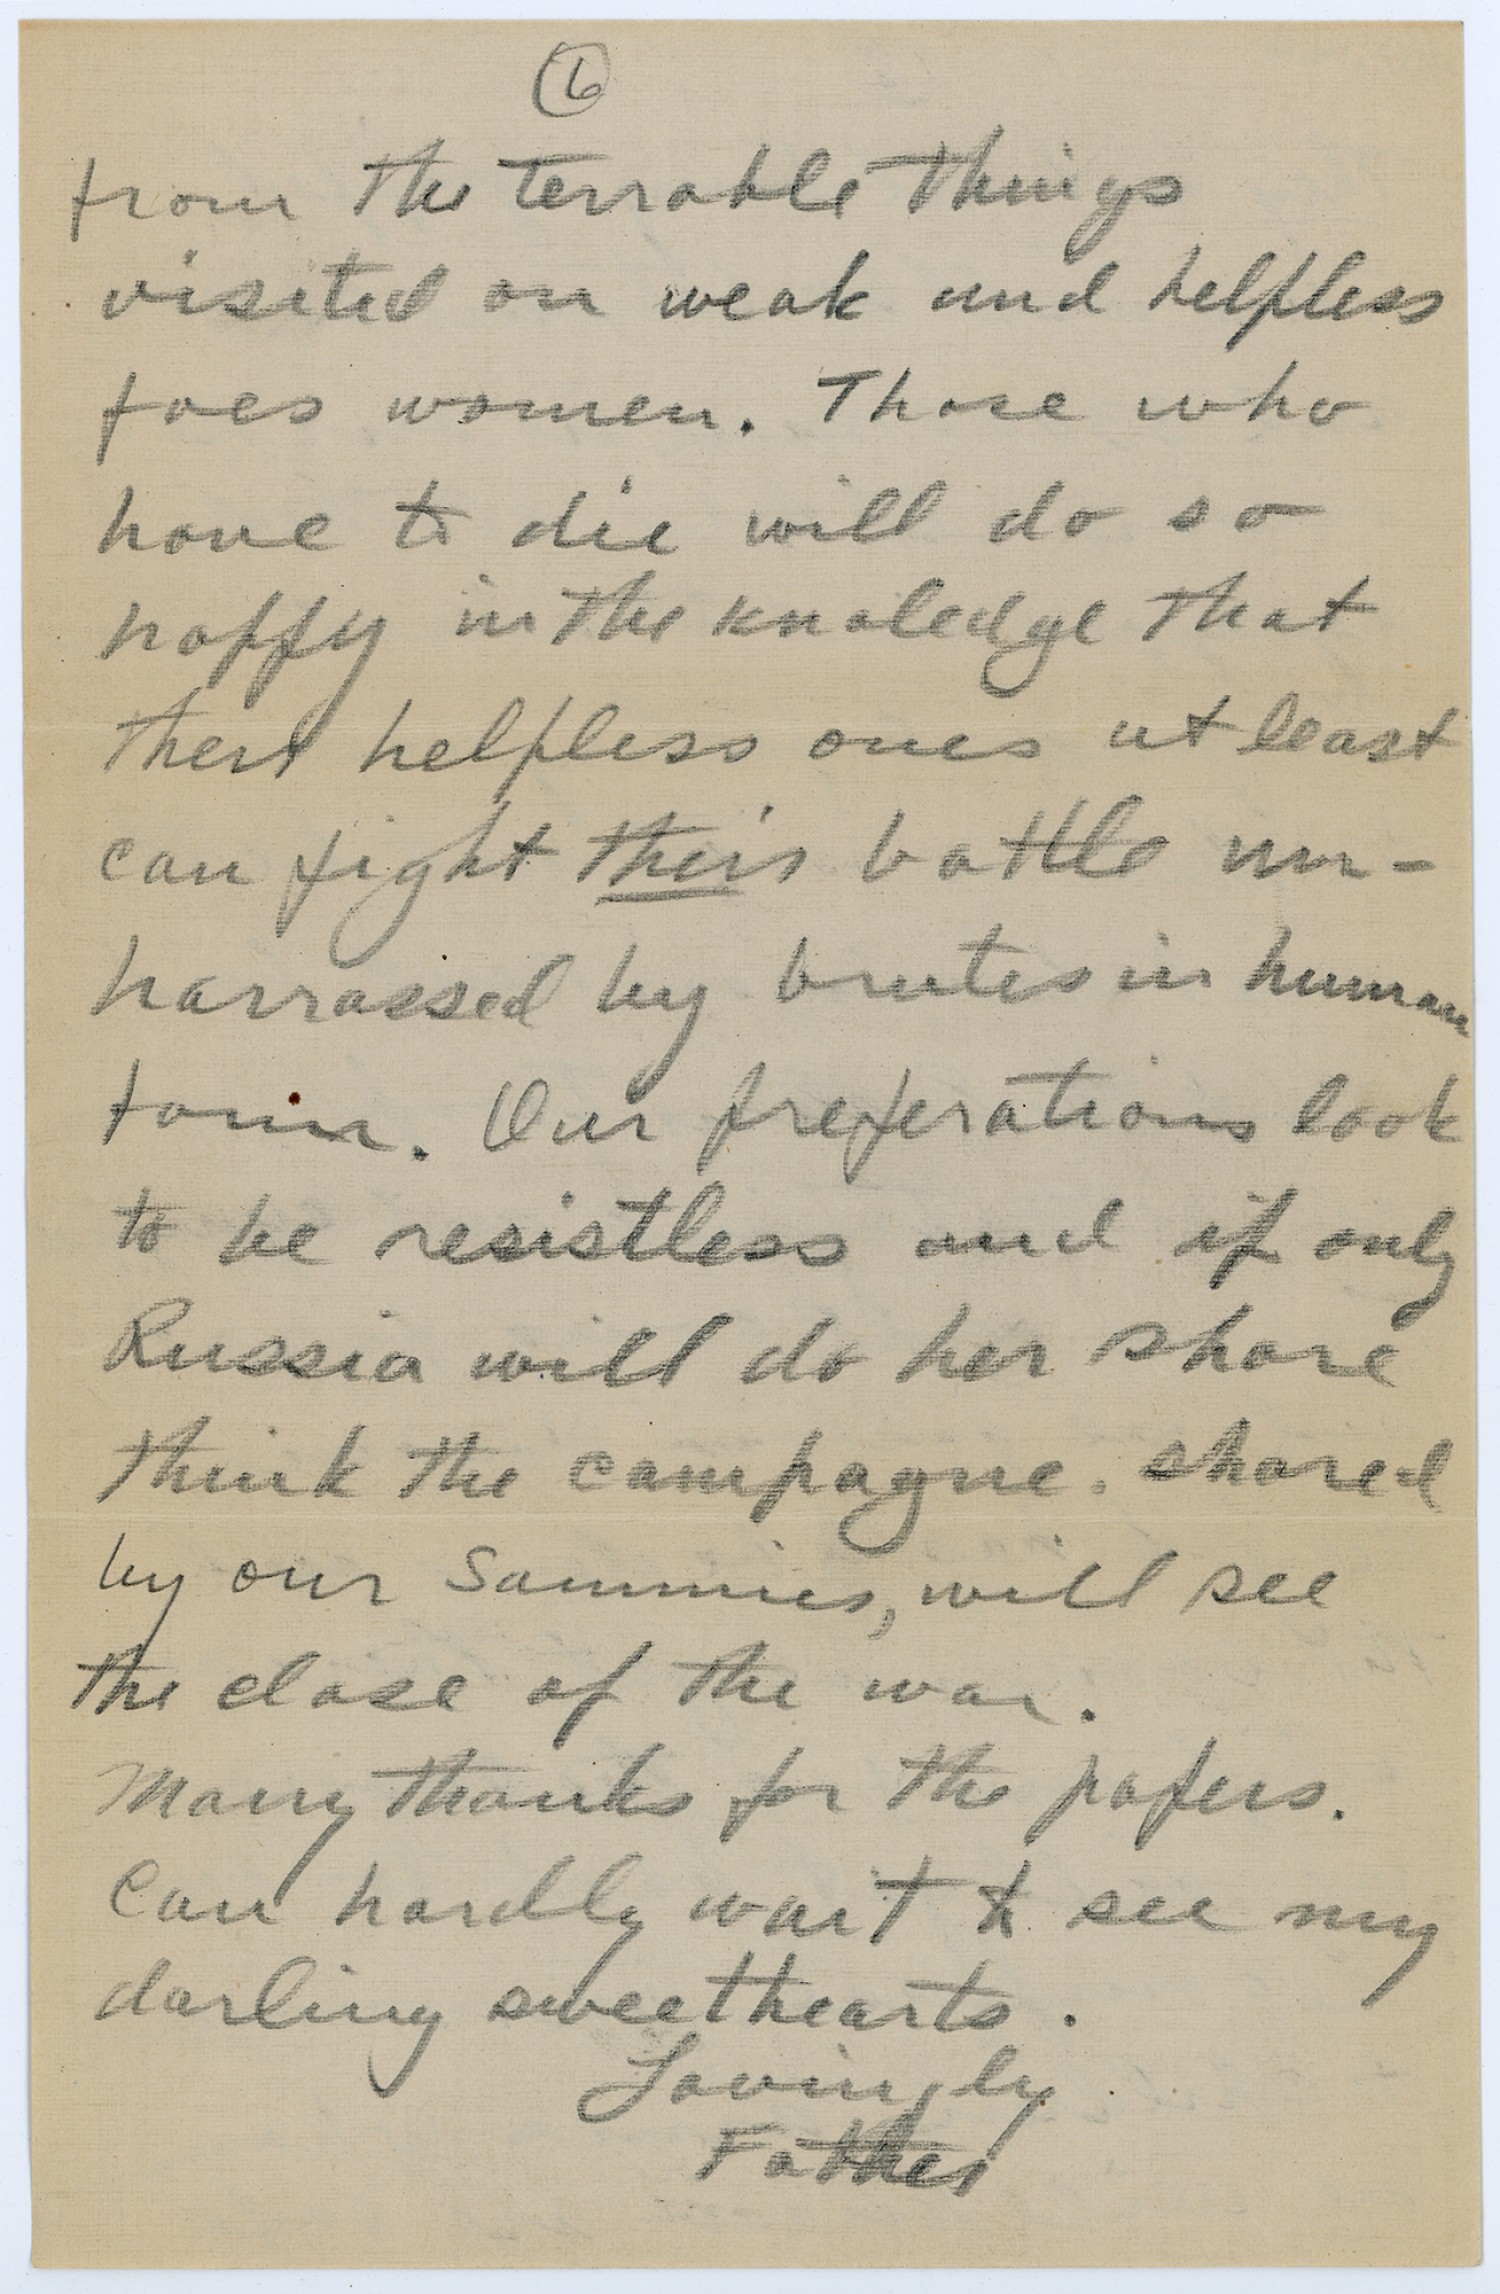 6
from the terrable things
visited on weak and helpless
foes women. Those who
have to die will do so
happy in the knoledge that
there helpless ones at least
can fight their's battle un-
harrassed by brutes in human
form. Our preperations look
to be resistless and if only
Russia will do her share
think the campagne. shared
by our Sammies, will see
the close of the war.
Many thanks for the papers.
Can hardly wait to see my
darling sweethearts.
Lovingly
Father